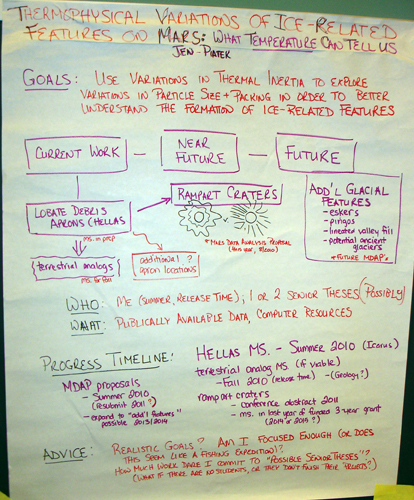 THERMOPHYSICAL VARIATIONS OF ICE-RELATED
FEATURES ON MARS: WHAT TEMPERATURE CAN TELL US
JEN PIATEK
GOALS: USE VARIATIONS IN THERMAL INERTIA TO EXPLORE
VARIATIONS IN PARTICLE SIZE + PACKING IN ORDER TO BETTER
UNDERSTAND THE FORMATION OF ICE-RELATED FEATURES
CURRENT WORK
NEAR
FUTURE
FUTURE
LOBATE DEBRIS
APRONS (HELLAS)
MS. in prep
terrestrial analogs
MS. for fall
additional ?
apron locations
RAMPART CRATERS
* MARS DATA ANALYSIS PROPOSAL
(this year, 8/2010)
ADD'L GLACIAL
FEATURES
- eskers
- pingos
- lineated valley fill
- potential ancient
glaciers
* FUTURE MDAP'S
WHO: ME (SUMMER, RELEASE TIME); 1 OR 2 SENIOR THESES (POSSIBLY)
WHAT: PUBLICALLY AVAILABLE DATA, COMPUTER RESOURCES
PROGRESS TIMELINE:
MDAP proposals
- Summer 2010
(resubmit 2011?)
- expand to "add'l features"
possible 2013/2014
HELLAS MS. - Summer 2010 (Icarus)
terrestrial analog MS. (if viable)
- Fall 2010 (release time) - (Geology?)
rampart craters
- conference abstract 2011
- ms. in last year of funded 3-year grant
ADVICE: REALISTIC GOALS? AM I FOCUSED ENOUGH (OR DOES
THIS SEEM LIKE A FISHING EXPEDITION)?
HOW MUCH WORK DARE I COMMIT TO "POSSIBLE SENIOR THESES"?
(WHAT IF THERE ARE NO STUDENTS, OR THEY DON'T FINISH THEIR PROJECTS?)